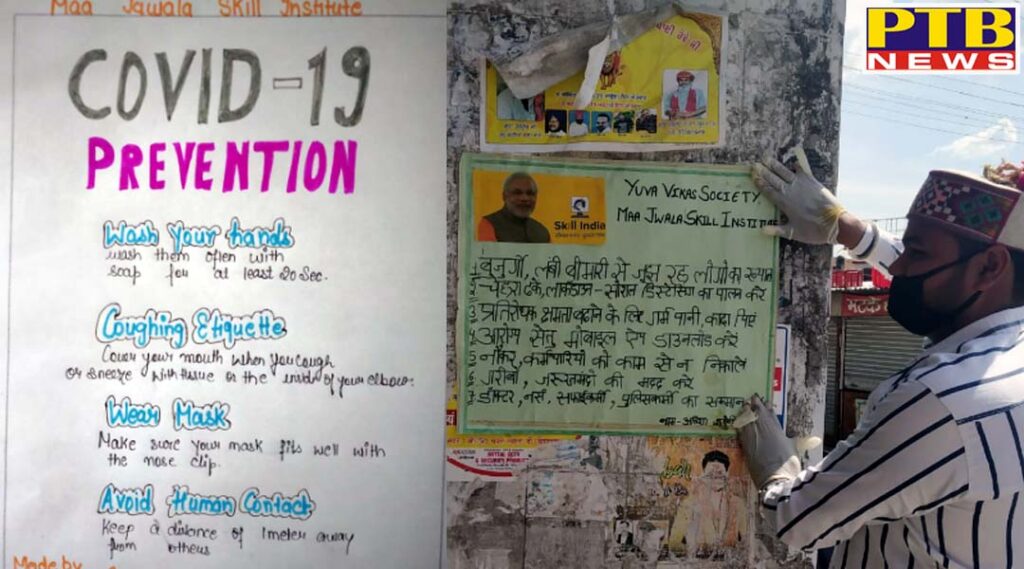 Maa Jawala Skill Institute
COVID-19
PREVENTION
Wash Your hands
wash them often with
soap for at least 20 sec.
Coughing Etiquette
Cover your mouth when you cough
or sneeze with tissue or the inside of your elbow.
Wear Mask
Make sure your mask fits well with
the nose clip.
Avoid Human Contact
Keep a distance of 1 meter away
from others
Made by
YUVA VIKAS SOCIETY
MAA JWALA SKILL INSTITUTE
Skill India
1. बुजुर्गो, लंबी बीमारी से जूझ रहे लोगो का ख्याल
2. चेहरा ढके, लाकडाउन - सोशल डिस्टेंसिंग का पालन करे
3. प्रतिरोधक क्षमता बढाने के लिए गर्म पानी, काढा पिएं
4. आरोग्य सेतु मोबाइल ऐप डाउनलोड करे
5. नौकर, कर्मचारियों को काम से न निकाले
6. गरीबो, जरूरतमंदो की मदद करे
7. डॉक्टर, नर्स, सफाईकर्मी, पुलिसकर्मी का सम्मान
नाम-
PTB
NEWS